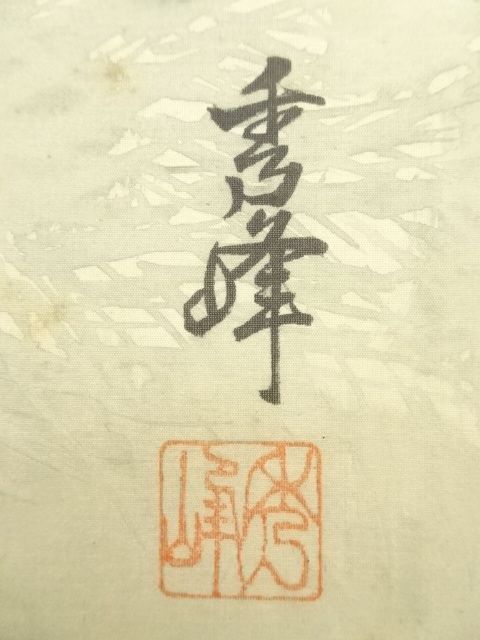 秀峰
秀峰